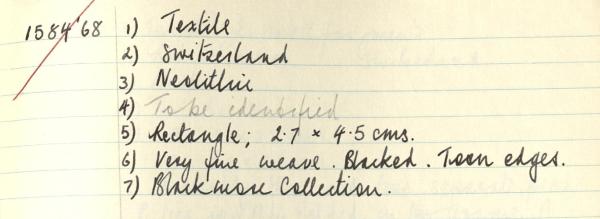 1584'68 1) Textile
2) Switzerland
3) Neolithic
4) To be identified
5) Rectangle; 2.7 × 4.5 cms.
6) Very fine weave. Blacked. Toon edges.
7) Blackmore Collection.